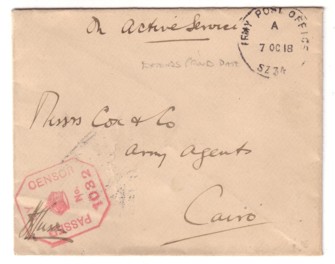 On Active Service
ARMY POST OFFICE
A
7 OC 18
SZ 34
Messrs Cox & Co
Army Agents
Cairo
PASSED CENSOR
No.
1032